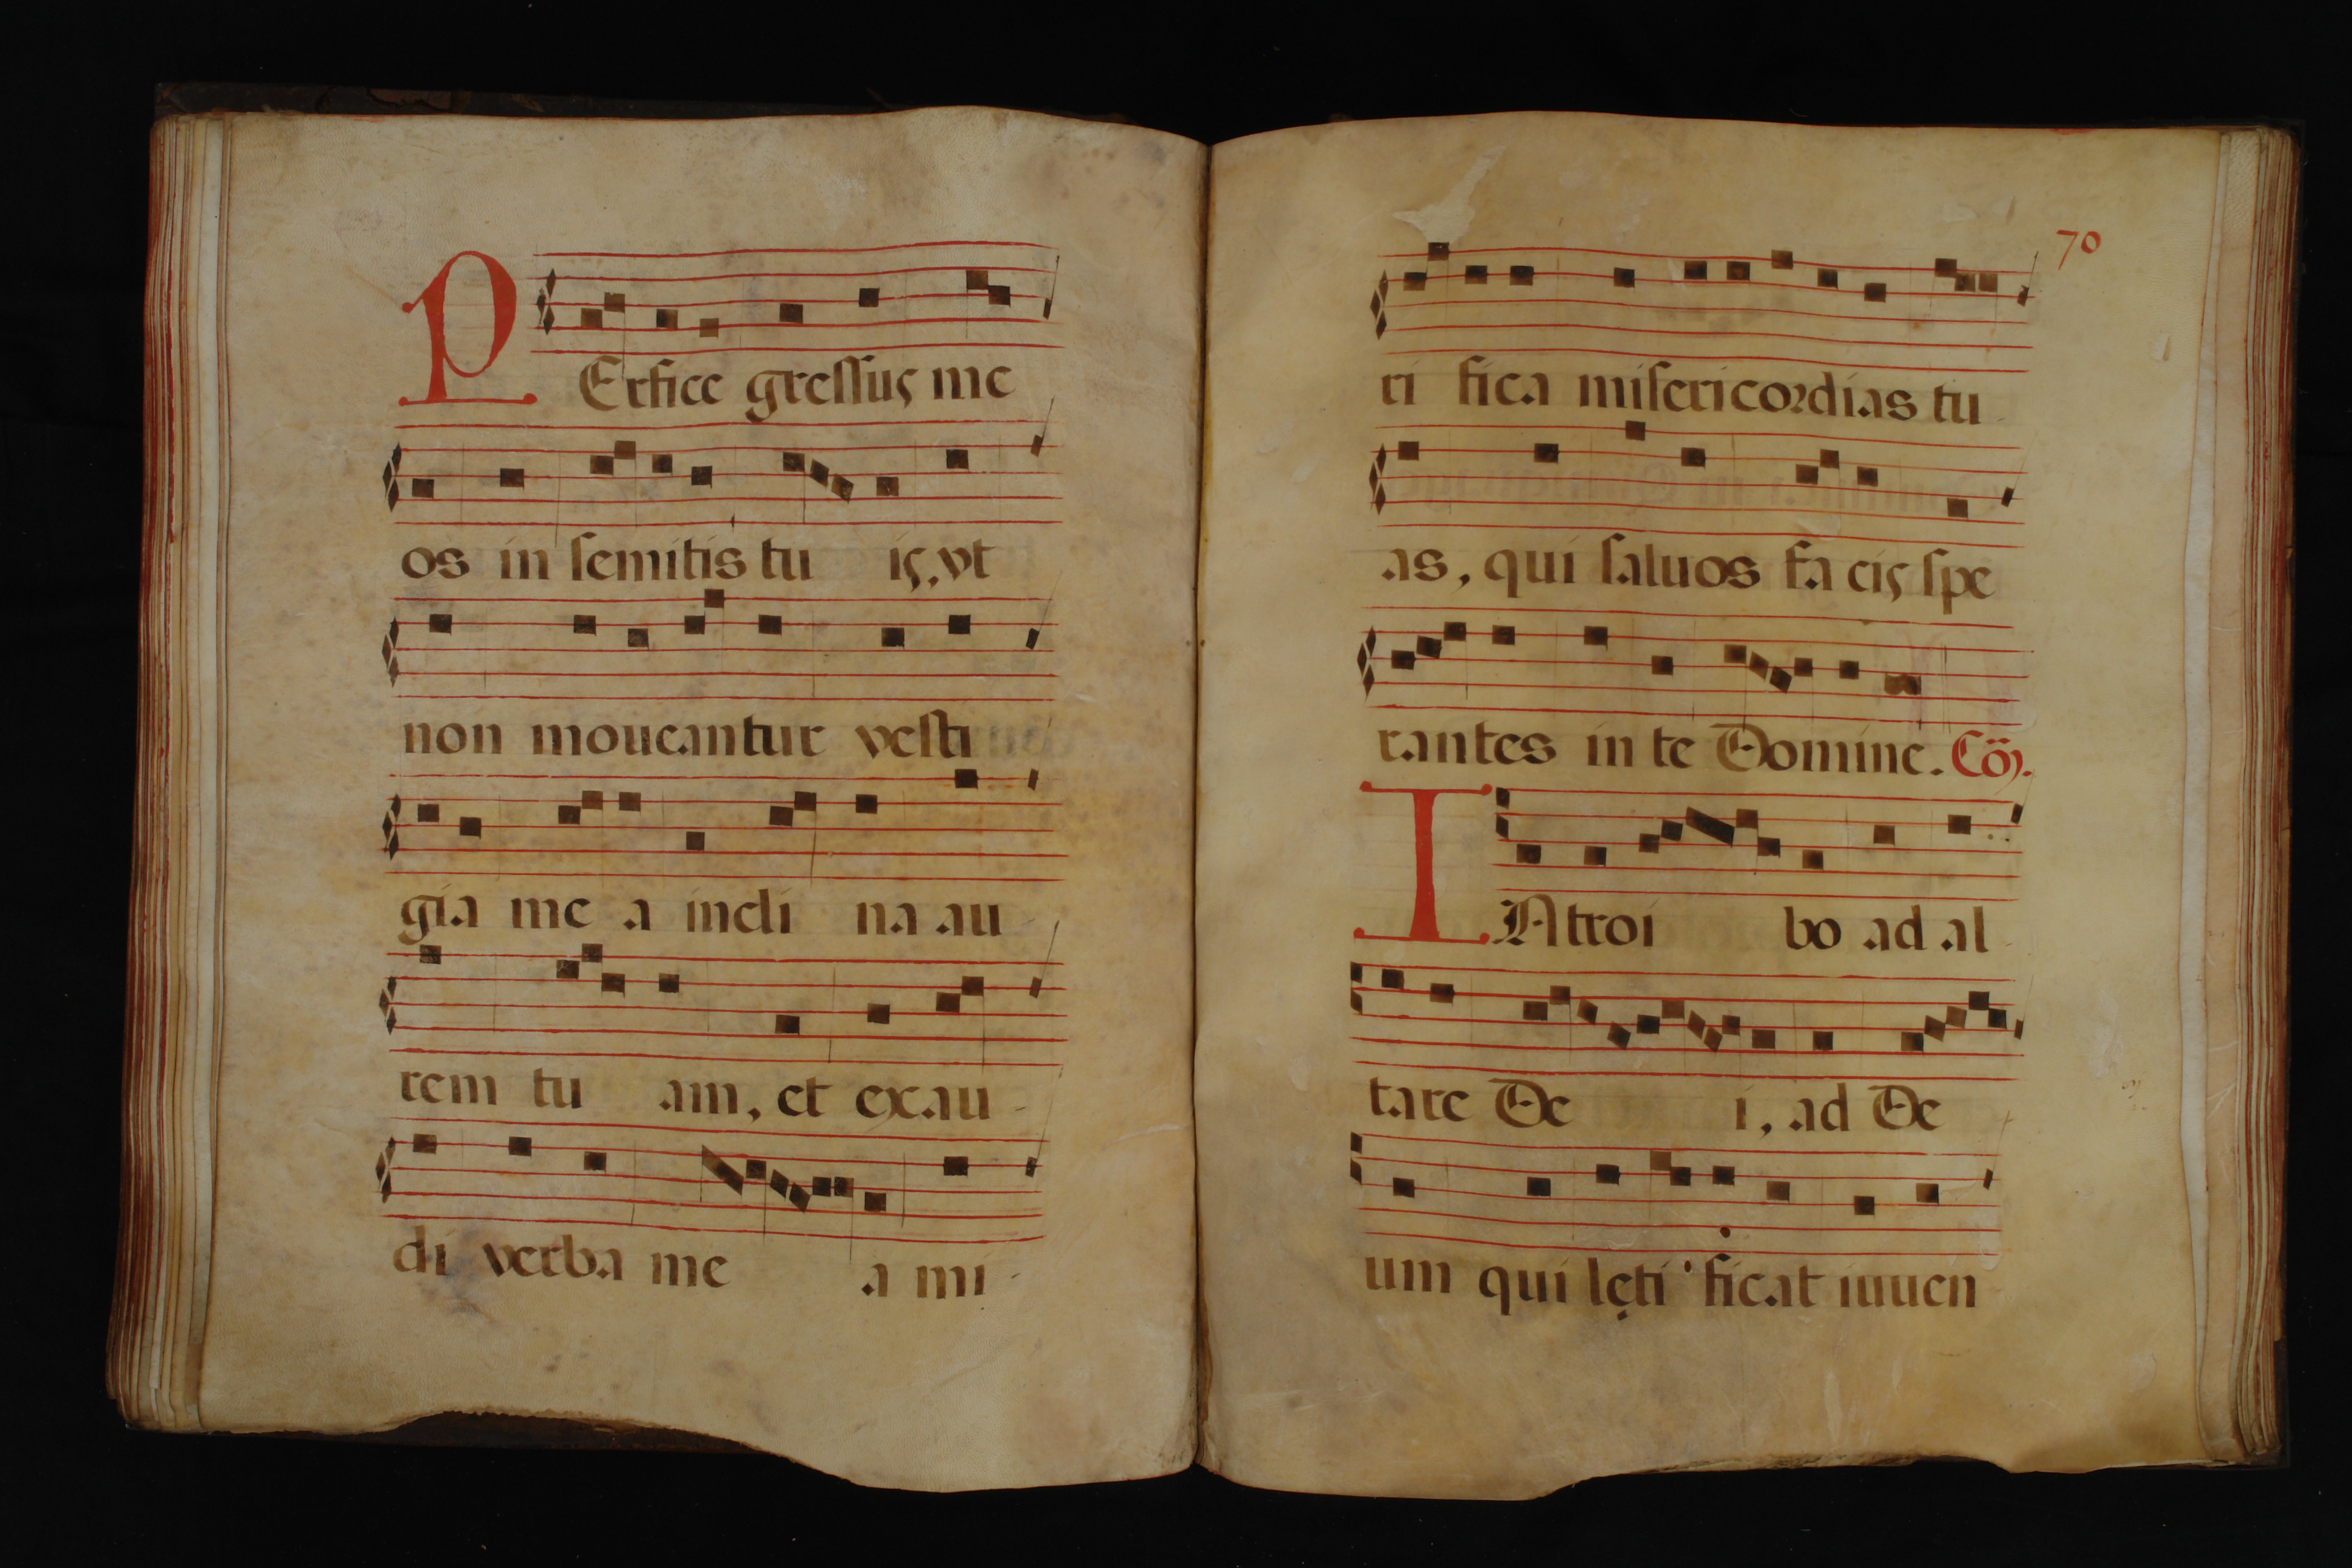 PErfice gressus me
os in semitis tu is, vt
non moueantur vesti
gia me a incli na au
rem tu am, et exau
di verba me a mi
70
ri fica misericordias tu
as, qui saluos fa cis spe
rantes in te Domine. Cõ.
INtroi bo ad al
tare De i, ad De
um qui lęti ficat iuuen